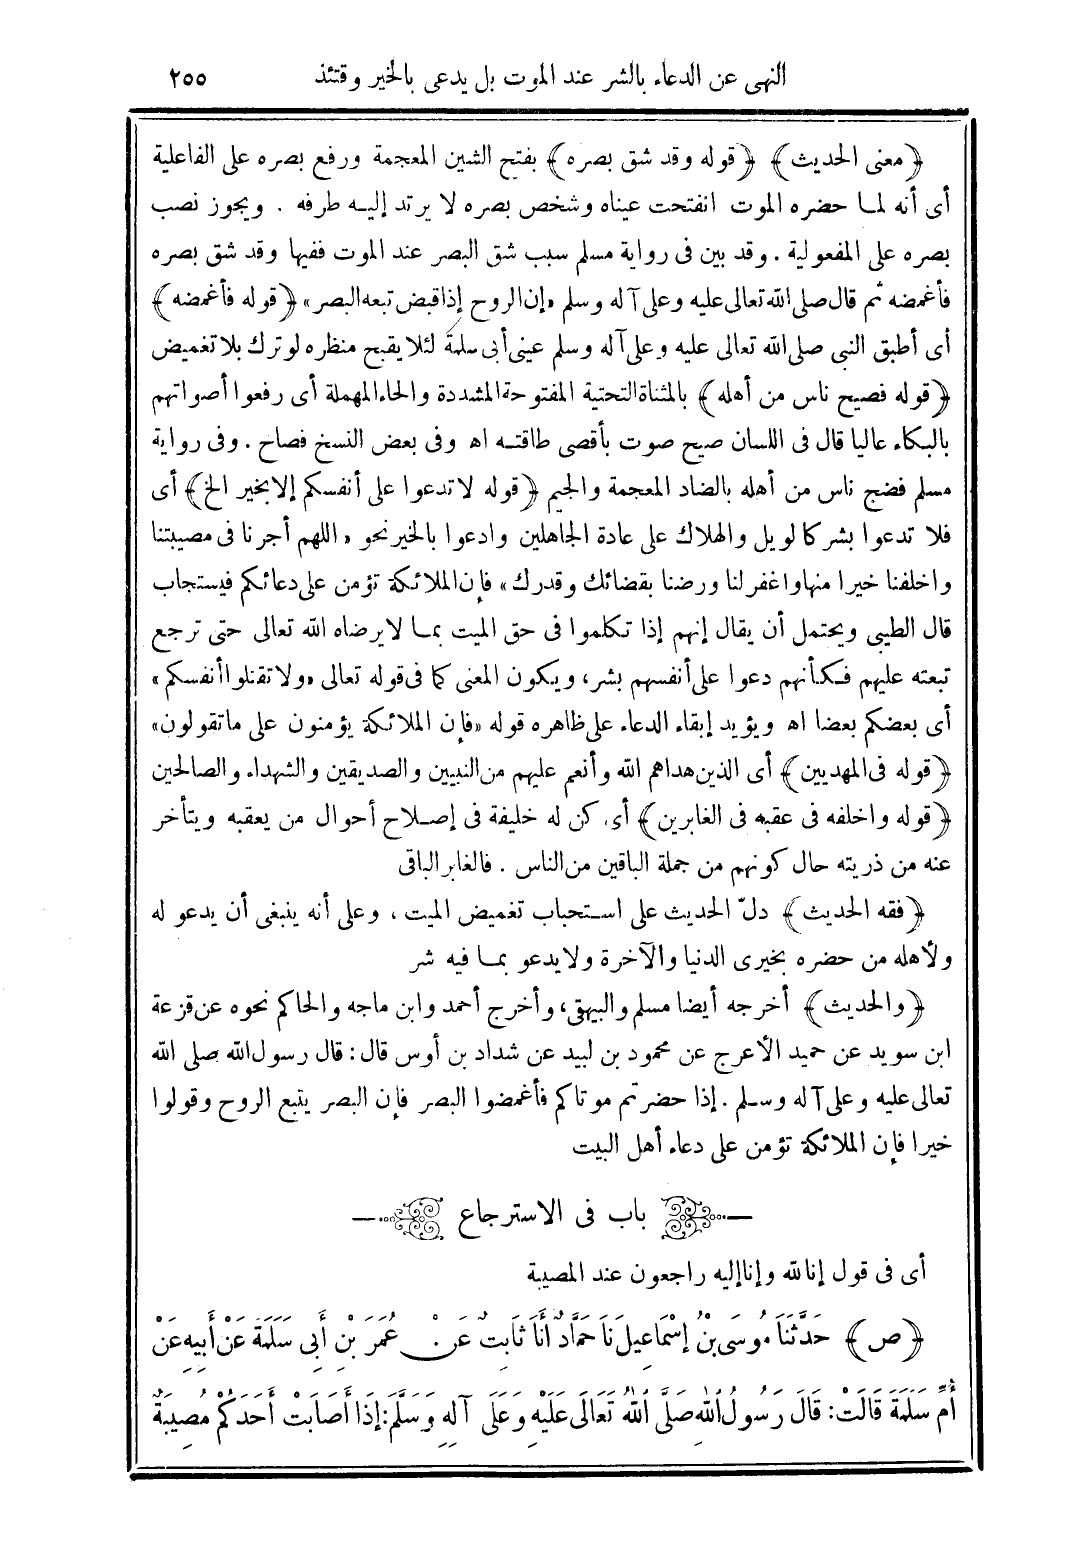 النهى عن الدعاء بالشر عند الموت بل يدعى بالخير وقتئذ ٢٥٥
﴿معنى الحديث﴾ ﴿قوله وقد شق بصره﴾ بفتح الشين المعجمة ورفع بصره على الفاعلية
أى أنه لما حضره الموت انفتحت عيناه وشخص بصره لا يرتد إليه طرفه . ويجوز نصب
بصره على المفعولية . وقد بين فى رواية مسلم سبب شق البصر عند الموت ففيها وقد شق بصره
فأغمضه ثم قال صلى الله تعالى عليه وعلى آله وسلم «إن الروح إذا قبض تبعه البصر» ﴿قوله فأغمضه﴾
أى أطبق النبى صلى الله تعالى عليه وعلى آله وسلم عينى أبى سلمة لئلا يقبح منظره لو ترك بلا تغميض
﴿قوله فصيح ناس من أهله﴾ بالمثناة التحتية المفتوحة المشددة والحاء المهملة أى رفعوا أصواتهم
بالبكاء عاليا قال فى اللسان صيح صوت بأقصى طاقته اه وفى بعض النسخ فصاح . وفى رواية
مسلم فضج ناس من أهله بالضاد المعجمة والجيم ﴿قوله لا تدعوا على أنفسكم إلا بخير الخ﴾ أى
فلا تدعوا بشر كالويل والهلاك على عادة الجاهلين وادعوا بالخير نحو «اللهم أجرنا فى مصيبتنا
واخلفنا خيرا منها واغفر لنا ورضنا بقضائك وقدرك» فإن الملائكة تؤمن على دعائكم فيستجاب
قال الطيبى ويحتمل أن يقال إنهم إذا تكلموا فى حق الميت بما لا يرضاه الله تعالى حتى ترجع
تبعته عليهم فكأنهم دعوا على أنفسهم بشر، ويكون المعنى كما فى قوله تعالى «ولا تقتلوا أنفسكم»
أى بعضكم بعضا اه ويؤيد إبقاء الدعاء على ظاهره قوله «فإن الملائكة يؤمنون على ما تقولون»
﴿قوله فى المهديين﴾ أى الذين هداهم الله وأنعم عليهم من النبيين والصديقين والشهداء والصالحين
﴿قوله واخلفه فى عقبه فى الغابرين﴾ أى كن له خليفة فى إصلاح أحوال من يعقبه ويتأخر
عنه من ذريته حال كونهم من جملة الباقين من الناس . فالغابر الباقى
﴿فقه الحديث﴾ دلّ الحديث على استحباب تغميض الميت ، وعلى أنه ينبغى أن يدعو له
ولأهله من حضره بخيرى الدنيا والآخرة ولا يدعو بما فيه شر
﴿والحديث﴾ أخرجه أيضا مسلم والبيهقى، وأخرج أحمد وابن ماجه والحاكم نحوه عن قزعة
ابن سويد عن حميد الأعرج عن محمود بن لبيد عن شداد بن أوس قال : قال رسول الله صلى الله
تعالى عليه وعلى آله وسلم . إذا حضرتم موتاكم فأغمضوا البصر فإن البصر يتبع الروح وقولوا
خيرا فإن الملائكة تؤمن على دعاء أهل البيت
باب فى الاسترجاع
أى فى قول إنا لله وإنا إليه راجعون عند المصيبة
﴿ص﴾ حَدَّثَنَا مُوسَى بْنُ إِسْمَاعِيلَ نَا حَمَّادٌ أَنَا ثَابِتٌ عَنْ عُمَرَ بْنِ أَبِى سَلَمَةَ عَنْ أَبِيهِ عَنْ
أُمِّ سَلَمَةَ قَالَتْ: قَالَ رَسُولُ اللهِ صَلَّى اللهُ تَعَالَى عَلَيْهِ وَعَلَى آلِهِ وَسَلَّمَ: إِذَا أَصَابَتْ أَحَدَكُمْ مُصِيبَةٌ